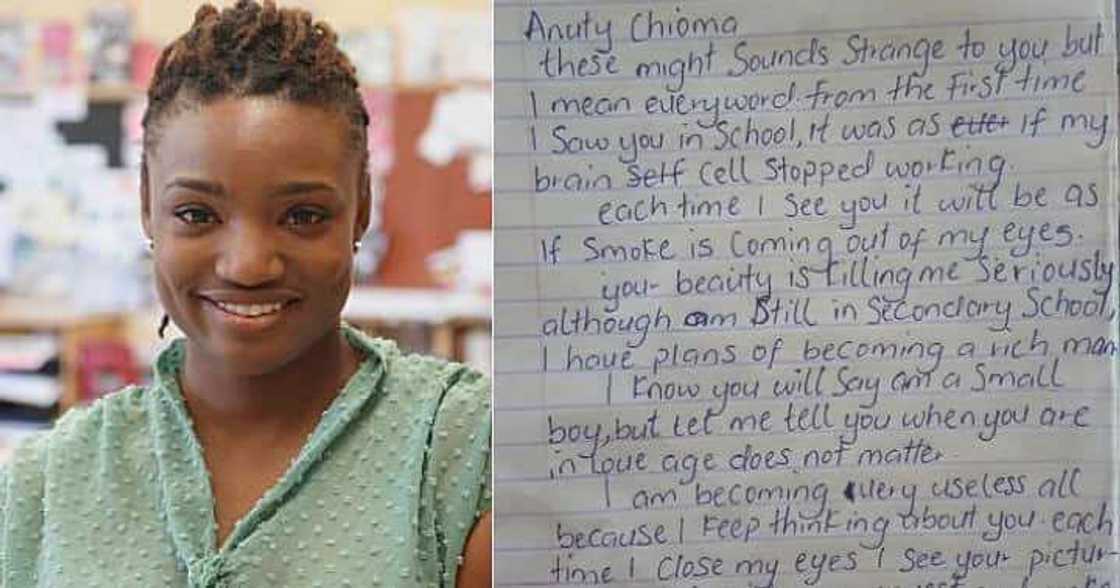 Anuty Chioma
these might Sounds Strange to you but
I mean everyword. from the First time
I Saw you in School, it was as if my
brain Self Cell Stopped working.
each time I See you it will be as
If Smoke is Coming out of my eyes.
your beauity is killing me Seriously
although am Still in Secondary School,
I have plans of becoming a rich man
I Know you will Say am a Small
boy, but Let me tell you when you are
in love age does not matter
I am becoming very useless all
because I Keep thinking about you. each
time I Close my eyes I See your pictur